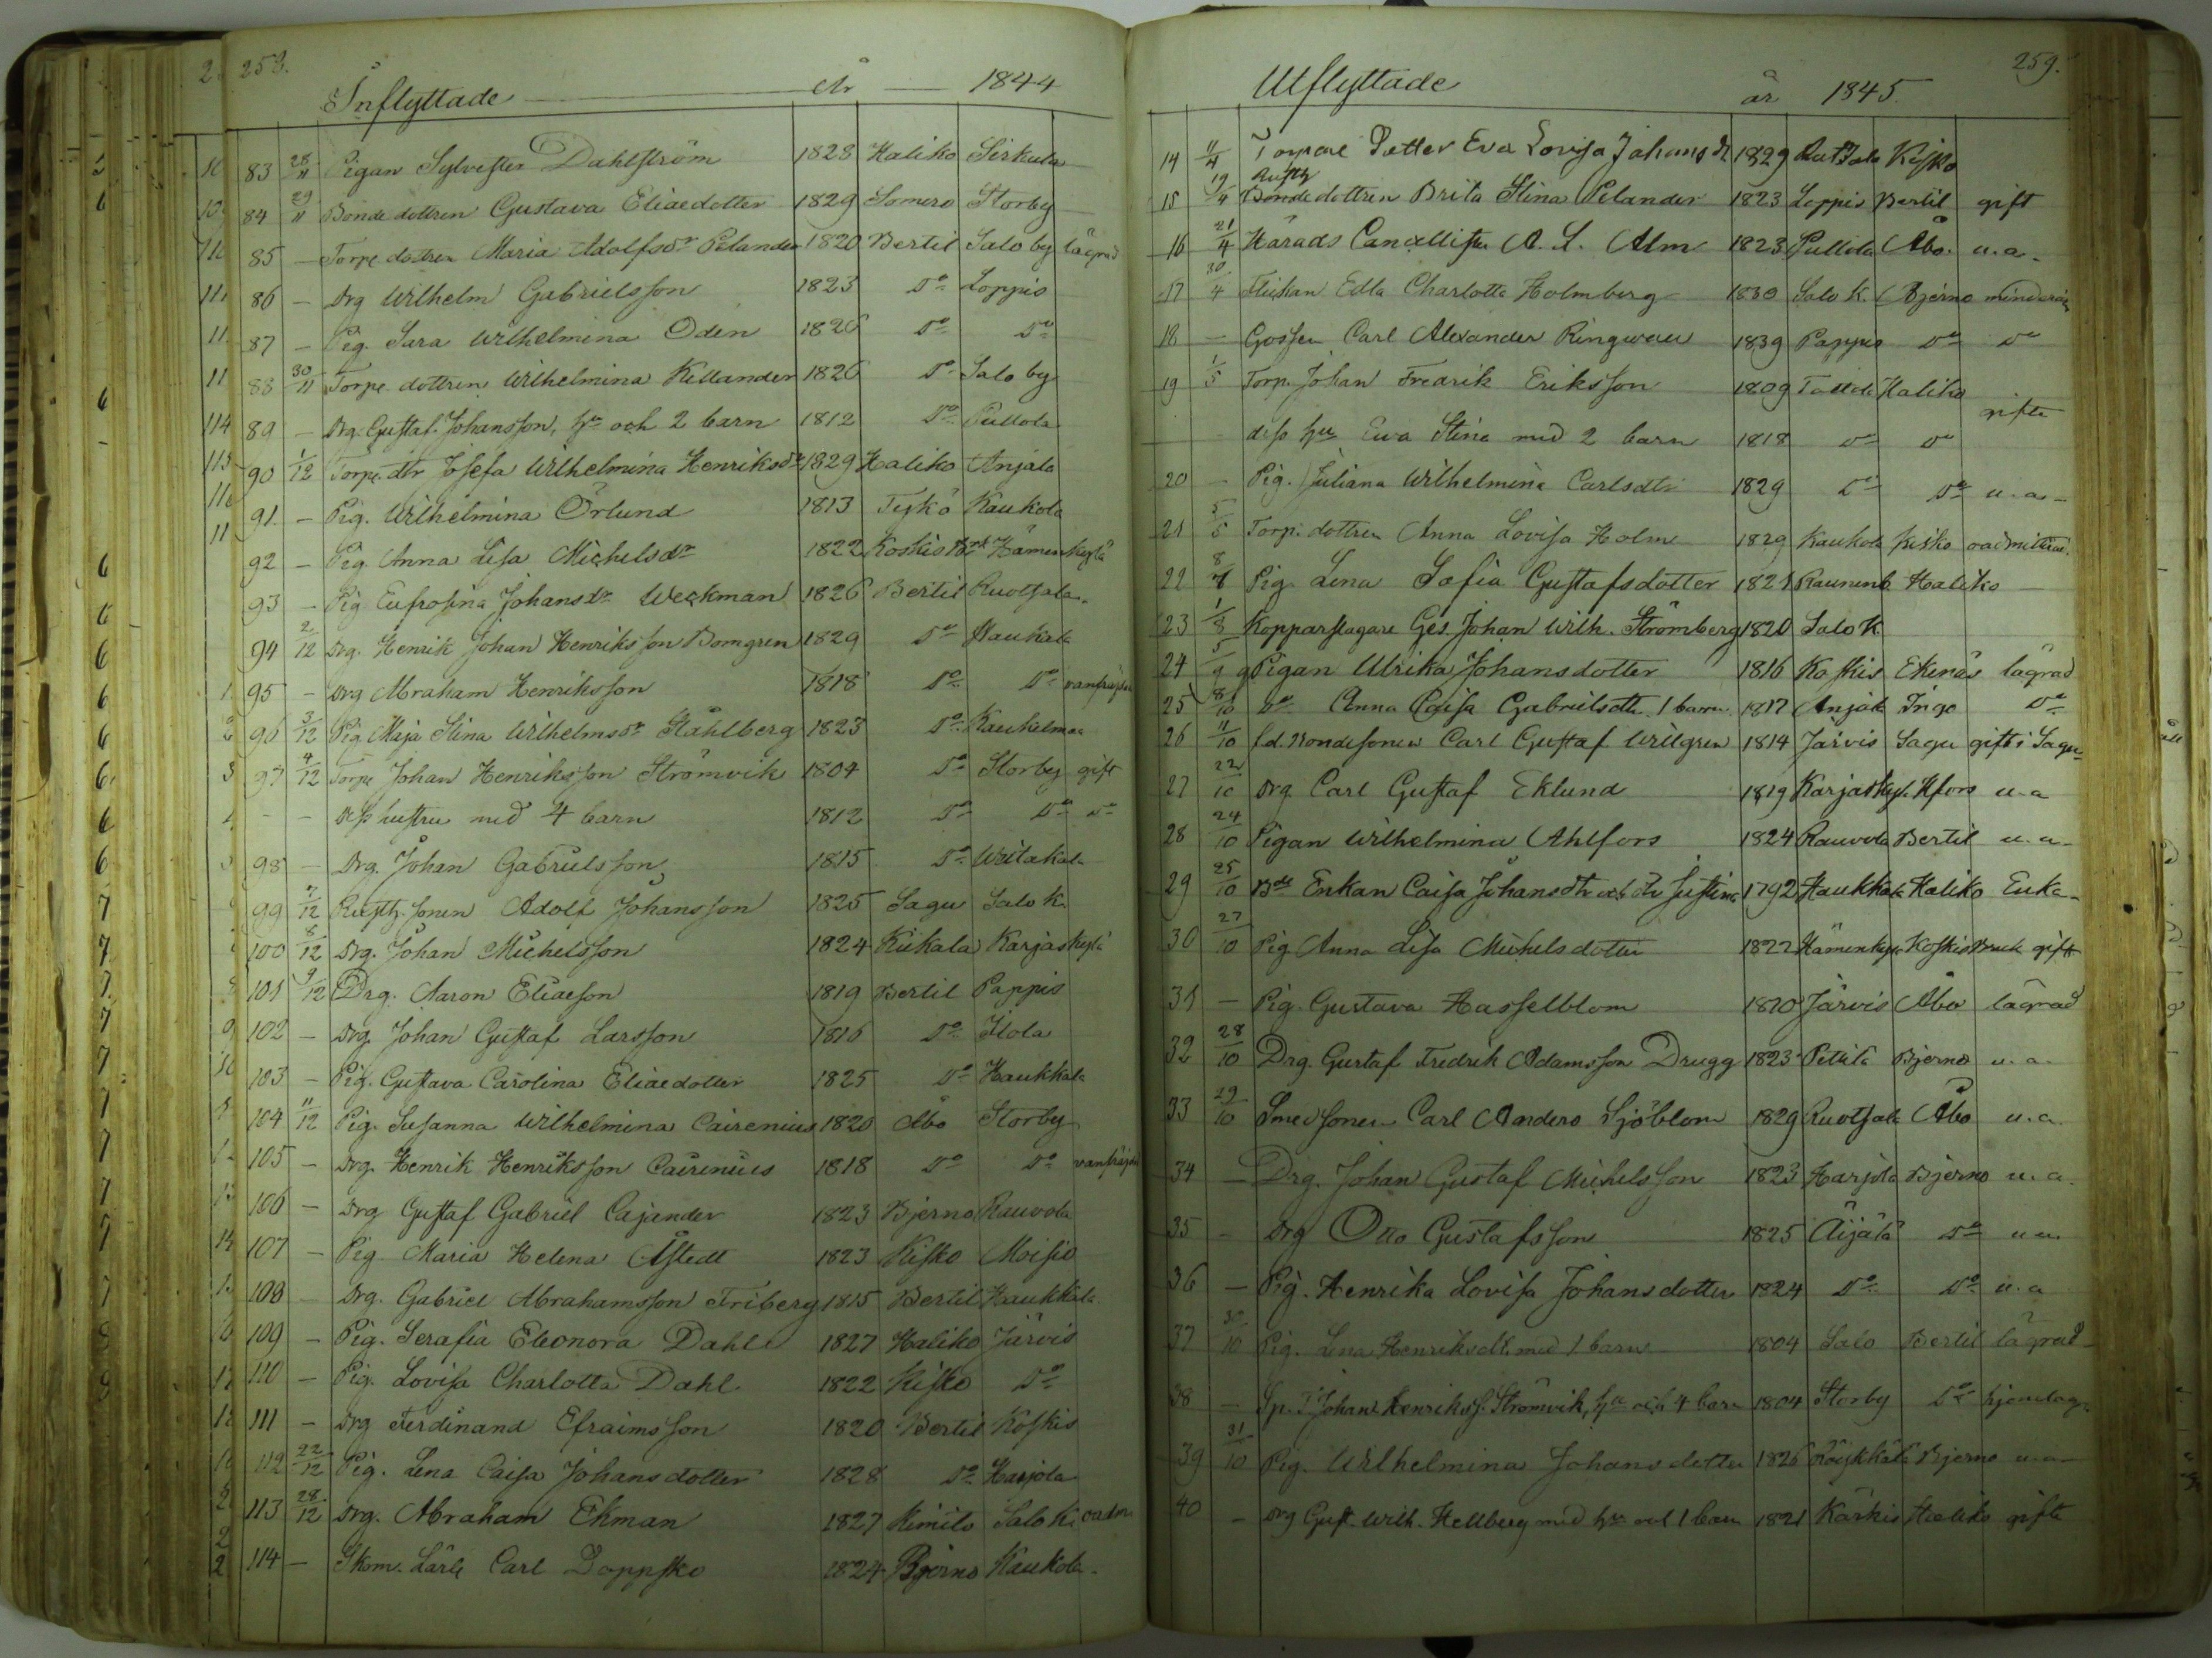 258.
Inflyttade år 1844
83 28/11 Pigan Sylvester Dahlström 1828 Haliko Sirkula
84 29/11 Bonde dottren Gustava Eliaedotter 1829 Somero Storby
85 – Torpe dottren Maria Adolfsdr Pelander 1820 Bertil Salo by lägrad
86 – Drg Wilhelm Gabrielsson 1823 Do Loppis
87 – Pig. Sara Wilhelmina Oden 1826 Do Do
88 30/11 Torpe dottren Wilhelmina Killander 1826 Do Salo by
89 – Drg. Gustaf Johansson, hu och 2 barn 1812 Do Pullola
90 1/12 Torpe dtr Josefa Wilhelmina Henriksdr 1829 Haliko Anjala
91. – Pig. Wilhelmina Örlund 1813 Tykö Kaukola
92 – Pig. Anna Lisa Michelsdr 1822 Koskis Bruk Hämenkylä
93 – Pig Eufrosina Johansdr Weckman 1826 Bertil Ruotsala.
94 2/12 Drg. Henrik Johan Henriksson Bomgren 1829 Do Haukala
95 – Drg Abraham Henriksson 1818 Do Do vanfräjdad
96 3/12 Pig Maja Stina Wilhelmsdr Ståhlberg 1823 Do Kauhelmaa
97 4/12 Torpe Johan Henriksson Strömvik 1804 Do Storby gift
– – Dess hustru med 4 barn 1812 Do Do Do
98 – Drg. Johan Gabrielsson 1815 Do Writakala
99 7/12 Rusth. sonen Adolf Johansson 1825 Sagu Salo K.
100 8/12 Drg. Johan Michelsson 1824 Kiikala Karjaskylä
101 9/12 Drg. Aaron Eliaeson 1819 Bertil Pappis
102 – Drg. Johan Gustaf Larsson 1816 Do Isola
103 – Pig. Gustava Carolina Eliaedotter 1825 Do Haukkala
104 11/12 Pig. Susanna Wilhelmina Cairenius 1820 Åbo Storby
105 – Drg. Henrik Henriksson Cairenius 1818 Do Do vanfräjd
106 – Drg Gustaf Gabriel Cajander 1823 Bjerno Rauvola
107 – Pig. Maria Helena Åstedt 1823 Kisko Moisio
108 – Drg. Gabriel Abrahamsson Friberg 1815 Bertil Haukkala
109 – Pig. Serafia Eleonora Dahl 1827 Haliko Järvis
110 – Pig. Lovisa Charlotta Dahl 1822 Kisko Do
111 – Drg Ferdinand Efraimsson 1820 Bertil Koskis
112 22/12 Pig. Lena Caisa Johansdotter 1828 Do Harjola
113 28/12 Drg. Abraham Ekman 1827 Kimito Salo K. oadm
114 – Skom. Lärl. Carl Doppsko 1824 Bjerno Kaukola.
259.
Utflyttade år 1845.
14 11/4 Torpare Dotter Eva Lovisa Johansdr 1829 Ruotsala Kisko
Rusth
15 19/4 Bondedottren Brita Stina Pelander 1823 Loppis Bertil gift
16 21/4 Härads Cancellisten A. L. Alm 1823 Pullola Åbo. u.a.
17 30/4 Flickan Edla Charlotta Holmberg 1830 Salo K. Bjerno minderårig
18 – Gossen Carl Alexander Ringwall 1839 Pappis Do Do
19 1/5 Torp. Johan Fredrik Eriksson 1809 Tottola Haliko
gifta
– diss hu Eva Stina med 2 barn 1818 Do Do
20 – Pig. Juliana Wilhelmina Carlsdtr 1829 Do Do u.a.
21 5/5 Torp. dottren Anna Lovisa Holm 1829 Kaukola Kisko oadmitterad.
22 8/7 Pig. Lena Sofia Gustafsdotter 1821 Haliko
23 1/8 Kopparslagare Ges. Johan Wilh. Strömberg 1820 Salo K.
24 5/9 Pigan Ulrika Johansdotter 1816 Koskis Ekenäs lägrad
25 8/10 Do Anna Caisa Gabrielsdtr 1 barn 1817 Anjala Ingo Do
26 11/10 f.d. Bondesonen Carl Gustaf Wilgren 1814 Järvis Sagu gift i Sagu
27 22/10 Drg Carl Gustaf Eklund 1819 Karjaskyl. Hfors u.a
28 24/10 Pigan Wilhelmina Ahlfors 1824 Rauvola Bertil u.a.
29 25/10 Bde Enkan Caisa Johansdtr och dtr Justina 1792 Haukkala Haliko Enka
30 27/10 Pig Anna Lisa Michelsdotter 1822 Hämenkyl. Koskis Bruk gift
31 – Pig. Gustava Hasselblom 1820 Järvis Åbo lägrad
32 28/10 Drg. Gustaf Fredrik Adamsson Drugg 1823 Petäilä Bjerno u.a.
33 29/10 Smedsonen Carl Anders Sjöblom 1829 Ruotsala Åbo u.a.
34 – Drg. Johan Gustaf Michelsson 1823 Harjola Bjerno u.a.
35 – Drg Otto Gustafsson 1825 Äijälä Do u.a.
36 – Pig. Henrika Lovisa Johansdotter 1824 Do Do u.a
37 30/10 Pig. Lena Henriksdtr. med 1 barn 1804 Salo Bertil lägrad
38 – Sp. T Johan Henrikss. Strömvik, hu och 4 barn 1804 Storby Do
39 31/10 Pig. Wilhelmina Johansdotter 1826 Bjerno u.a
40 – Drg Gust. Wilh. Hellberg med hu och 1 barn 1821 Kärkis Haliko gifta